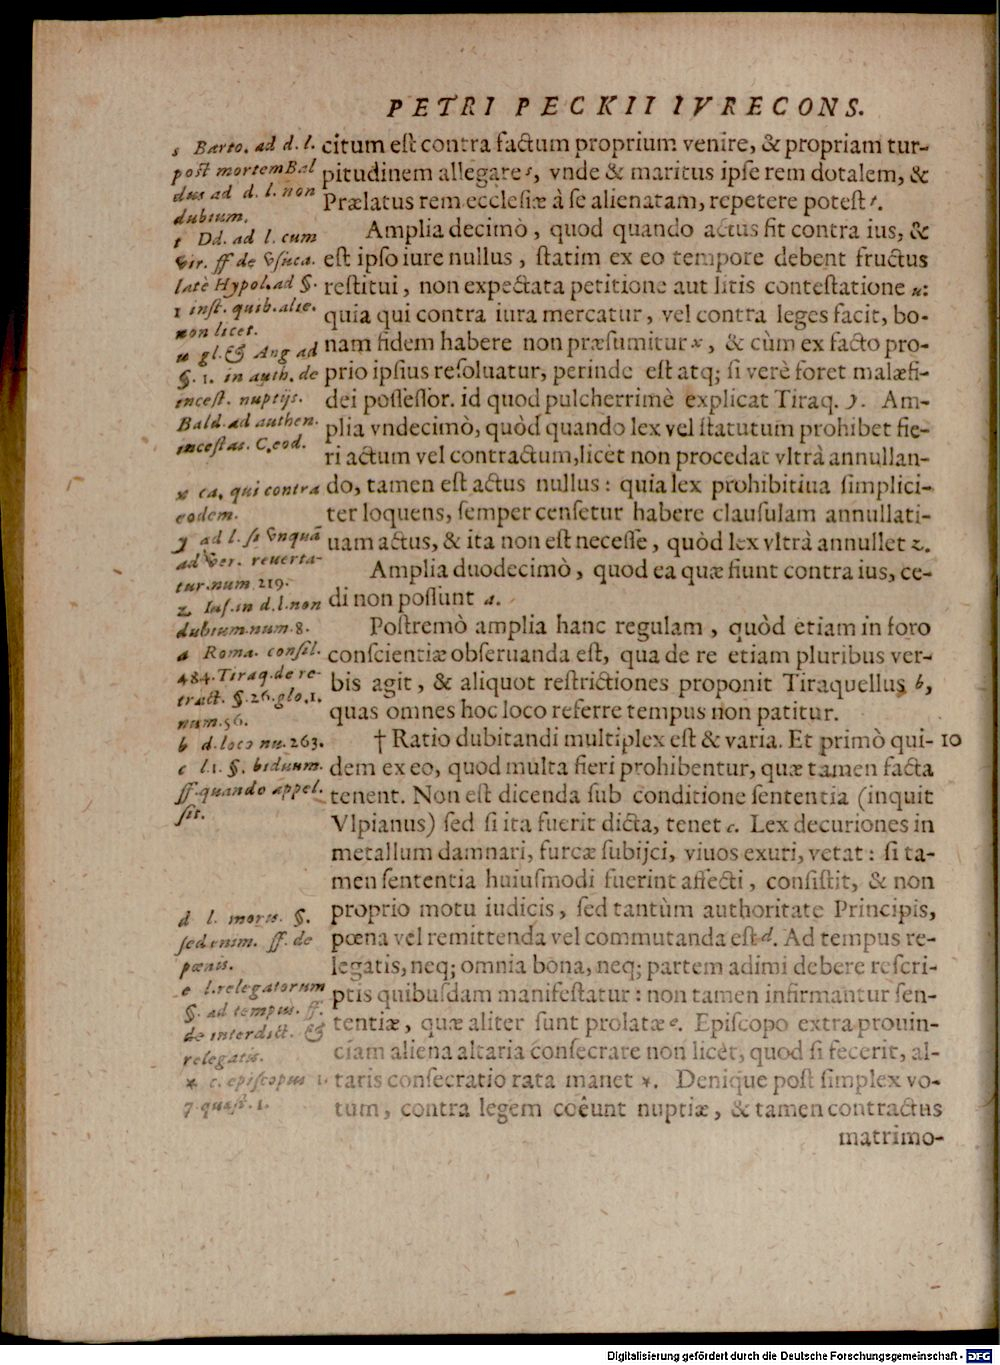 PETRI PECKII IVRECONS.
citum est contra factum proprium venire, & propriam tur-
pitudinem allegare s, vnde & maritus ipse rem dotalem, &
Prælatus rem ecclesiæ à se alienatam, repetere potest t.
Amplia decimò, quod quando actus fit contra ius, &
est ipso iure nullus, statim ex eo tempore debent fructus
restitui, non expectata petitione aut litis contestatione u:
quia qui contra iura mercatur, vel contra leges facit, bo-
nam fidem habere non præsumitur x, & cùm ex facto pro-
prio ipsius resoluatur, perinde est atq; si verè foret malæfi-
dei possessor. id quod pulcherrimè explicat Tiraq. y. Am-
plia vndecimò, quòd quando lex vel statutum prohibet fie-
ri actum vel contractum, licèt non procedat vltrà annullan-
do, tamen est actus nullus: quia lex prohibitiua simplici-
ter loquens, semper censetur habere clausulam annullati-
uam actus, & ita non est necesse, quòd lex vltrà annullet z.
Amplia duodecimò, quod ea quæ fiunt contra ius, ce-
di non possunt a.
Postremò amplia hanc regulam, quòd etiam in foro
conscientiæ obseruanda est, qua de re etiam pluribus ver-
bis agit, & aliquot restrictiones proponit Tiraquellus b,
quas omnes hoc loco referre tempus non patitur.
† Ratio dubitandi multiplex est & varia. Et primò qui- 10
dem ex eo, quod multa fieri prohibentur, quæ tamen facta
tenent. Non est dicenda sub conditione sententia (inquit
Vlpianus) sed si ita fuerit dicta, tenet c. Lex decuriones in
metallum damnari, furcæ subijci, viuos exuri, vetat: si ta-
men sententia huiusmodi fuerint affecti, consistit, & non
proprio motu iudicis, sed tantùm authoritate Principis,
pœna vel remittenda vel commutanda est d. Ad tempus re-
legatis, neq; omnia bona, neq; partem adimi debere rescri-
ptis quibusdam manifestatur: non tamen infirmantur sen-
tentiæ, quæ aliter sunt prolatæ e. Episcopo extra prouin-
ciam aliena altaria consecrare non licèt, quod si fecerit, al-
taris consecratio rata manet *. Denique post simplex vo-
tum, contra legem coêunt nuptiæ, & tamen contractus
matrimo-
s Barto. ad d. l.
post mortem Bal
dus ad d. l. non
dubium.
t Dd. ad l. cum
vir. ff de vsuca.
latè Hypol. ad §.
1 inst. quib. alie.
non licet.
u gl. & Ang ad
§. 1. in auth. de
incest. nuptijs.
Bald. ad authen.
incestas. C. eod.
x ca. qui contra
eodem.
y ad l. si vnquā
ad ver. reuerta-
tur. num. 219.
z Ias. in d. l. non
dubium. num. 8.
a Roma. consil.
484. Tiraq. de re-
tract. §. 26. glo. 1.
num. 56.
b d. loco nu. 263.
c l. 1. §. biduum.
ff. quando appel.
sit.
d l. moris. §.
sed enim. ff. de
pœnis.
e l. relegatorum
§. ad tempus. ff.
de interdict. &
relegatis.
* c. episcopus 1.
7. quæst. 1.
Digitalisierung gefördert durch die Deutsche Forschungsgemeinschaft - DFG